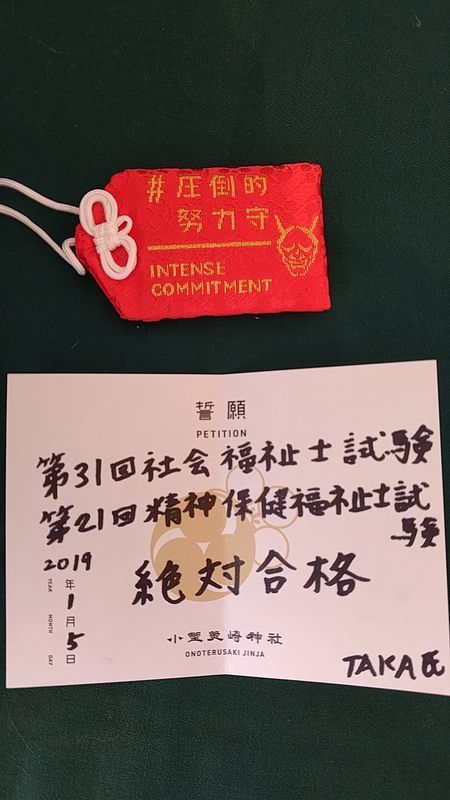 #圧倒的
努力守
INTENSE
COMMITMENT
誓願
PETITION
第31回社会福祉士試験
第21回精神保健福祉士試
験
絶対合格
2019
年
YEAR
1
月
MONTH
5
日
DAY
小野照崎神社
ONOTERUSAKI JINJA
TAKA氏